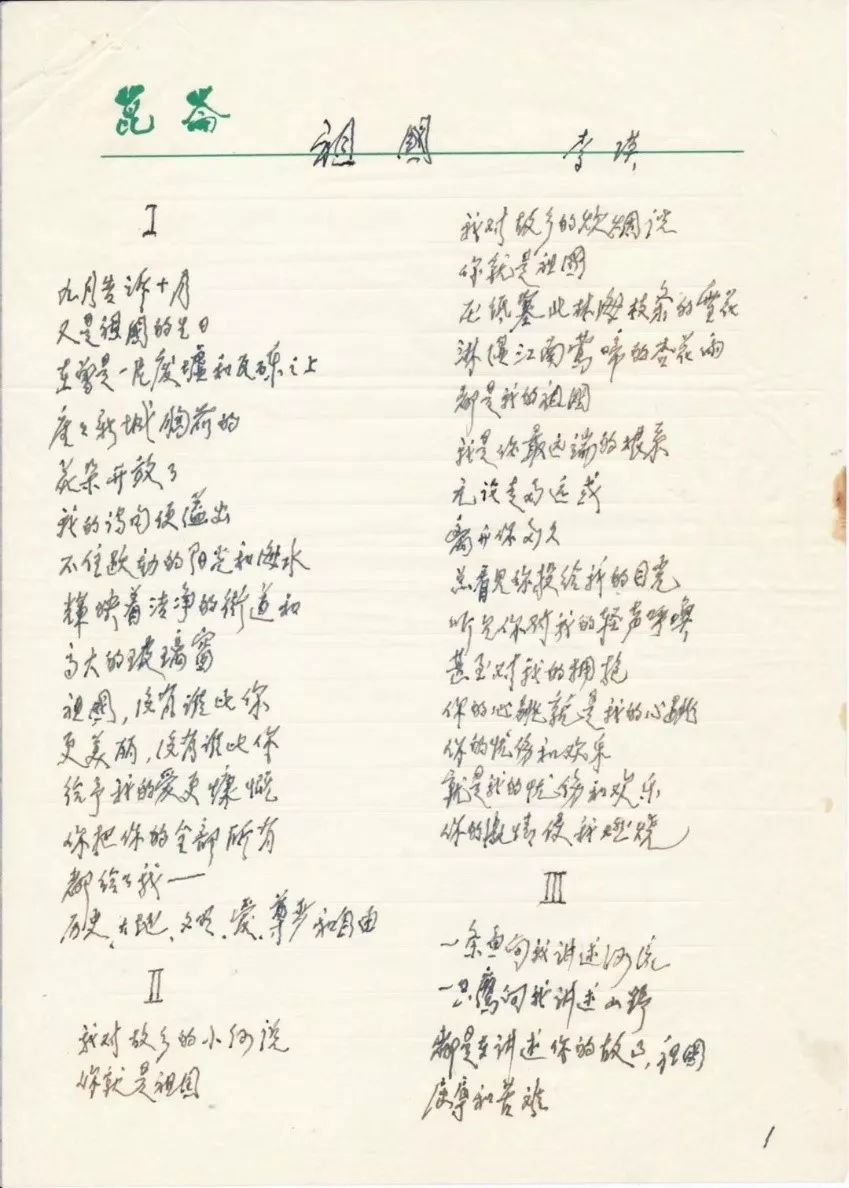 昆仑
祖国 李瑛
I
九月告诉十月
又是祖国的生日
在曾是一片废墟和瓦砾之上
座座新城胸前的
花朵开放了
我的诗句便溢出
不住跃动的阳光和海水
辉映着洁净的街道和
高大的玻璃窗
祖国,没有谁比你
更美丽,没有谁比你
给予我的爱更慷慨
你把你的全部所有
都给了我——
历史、大地、文明、爱、尊严和自由
II
我对故乡的小河说
你就是祖国
我对故乡的炊烟说
你就是祖国
压低塞北林海枝条的雪花
淋湿江南莺啼的杏花雨
都是我的祖国
我是你最远端的根系
无论走多远或
离开你多久
总看见你投给我的目光
听见你对我的轻声呼唤
甚至对我的拥抱
你的心跳就是我的心跳
你的忧伤和欢乐
就是我的忧伤和欢乐
你的激情使我燃烧
III
一条鱼向我讲述河流
一只鹰向我讲述山野
都是在讲述你的故事,祖国
屈辱和苦难
1